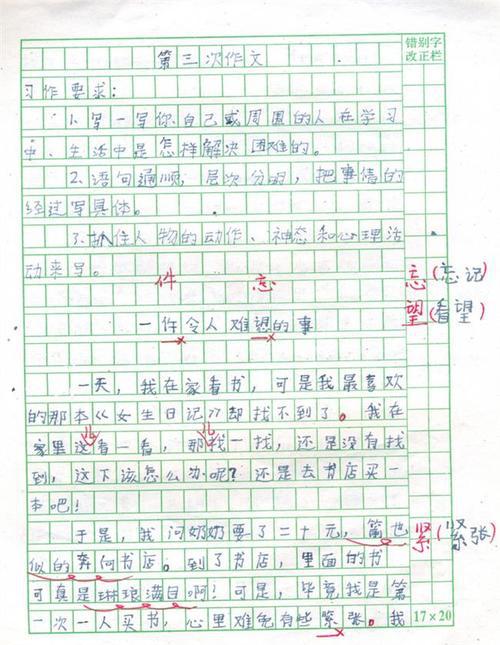 错别字
改正栏
第三次作文
习作要求：
1.写一写你自己或周围的人在学习
中、生活中是怎样解决困难的。
2.语句通顺，层次分明，把事情的
经过写具体。
3.抓住人物的动作、神态和心理活
动来写。
件 忘 忘(忘记)
望(看望)
一件令人难望的事
一天，我在家看书，可是我最喜欢
的那本《女生日记》却找不到了。我在
家里这看一看，那找一找，还是没有找
到，这下该怎么办呢？还是去书店买一
本吧！
于是，我问奶奶要了二十元，箭也 紧(紧张)
似的奔向书店。到了书店，里面的书
可真是琳琅满目啊！可是，毕竟我是第
一次一人买书，心里难免有些紧张。我
17×20